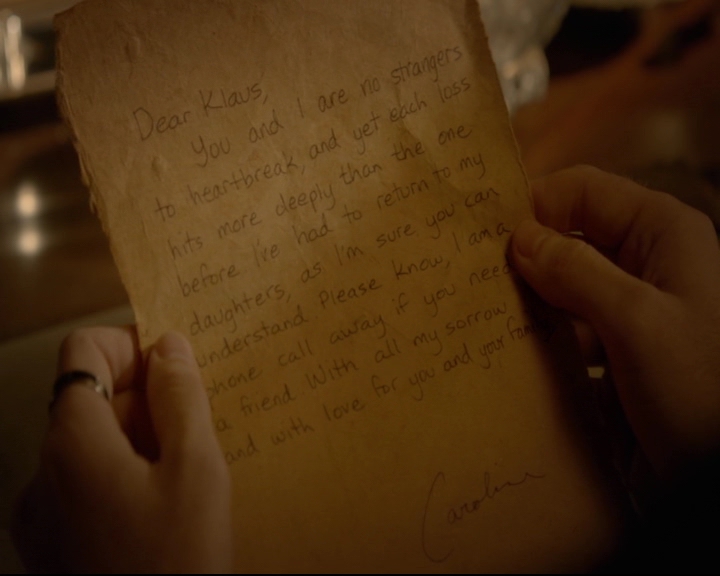 Dear Klaus,
You and I are no strangers
to heartbreak, and yet each loss
hits more deeply than the one
before I've had to return to my
daughters, as I'm sure you can
understand Please know, I am a
phone call away if you need
a friend With all my sorrow
and with love for you and your family
Caroline